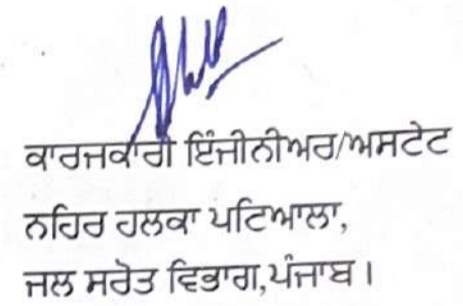 ਕਾਰਜਕਾਰੀ ਇੰਜੀਨੀਅਰ/ਅਸਟੇਟ
ਨਹਿਰ ਹਲਕਾ ਪਟਿਆਲਾ,
ਜਲ ਸਰੋਤ ਵਿਭਾਗ,ਪੰਜਾਬ।